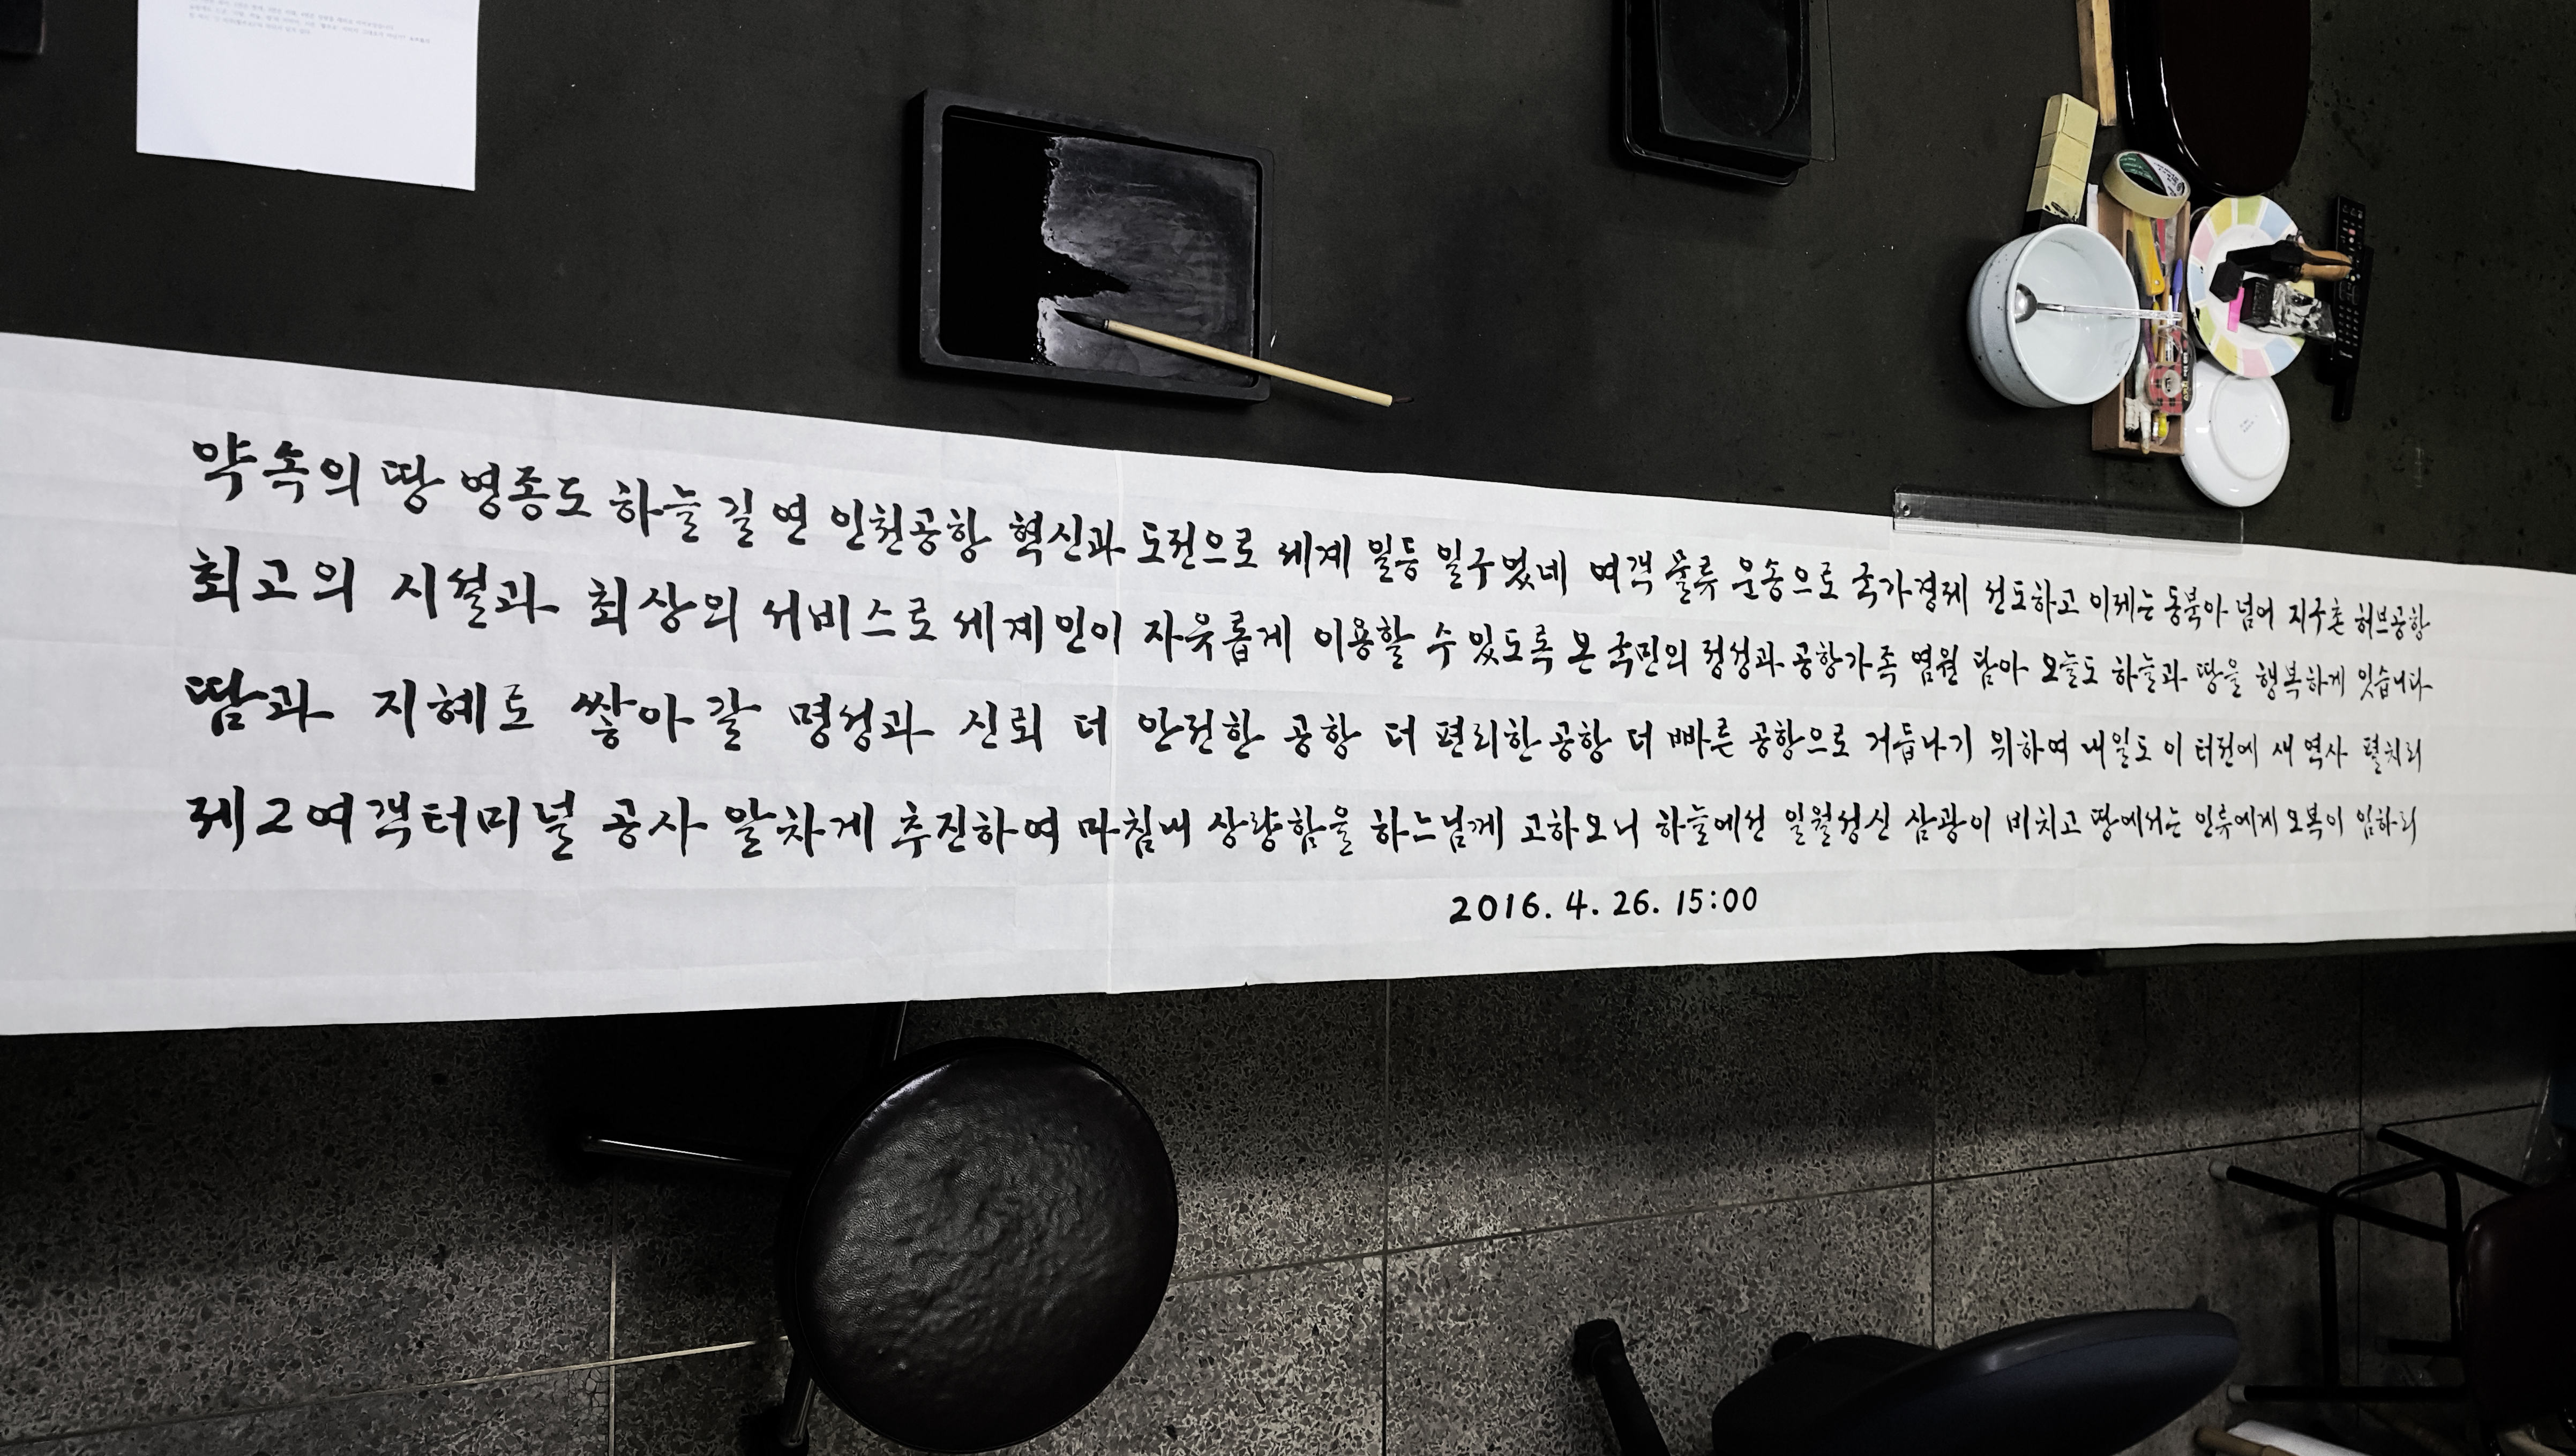 약속의 땅 영종도 하늘 길 연 인천공항 혁신과 도전으로 세계 일등 일구었네 여객 물류 운송으로 국가경제 선도하고 이제는 동북아 넘어 지구촌 허브공항
최고의 시설과 최상의 서비스로 세계인이 자유롭게 이용할 수 있도록 온 국민의 정성과 공항가족 염원 담아 오늘도 하늘과 땅을 행복하게 잇습니다
땀과 지혜로 쌓아 갈 명성과 신뢰 더 안전한 공항 더 편리한 공항 더 빠른 공항으로 거듭나기 위하여 내일도 이 터전에 새 역사 펼치리
제2여객터미널 공사 알차게 추진하여 마침내 상량함을 하느님께 고하오니 하늘에선 일월성신 삼광이 비치고 땅에서는 인류에게 오복이 임하리
2016. 4. 26. 15:00